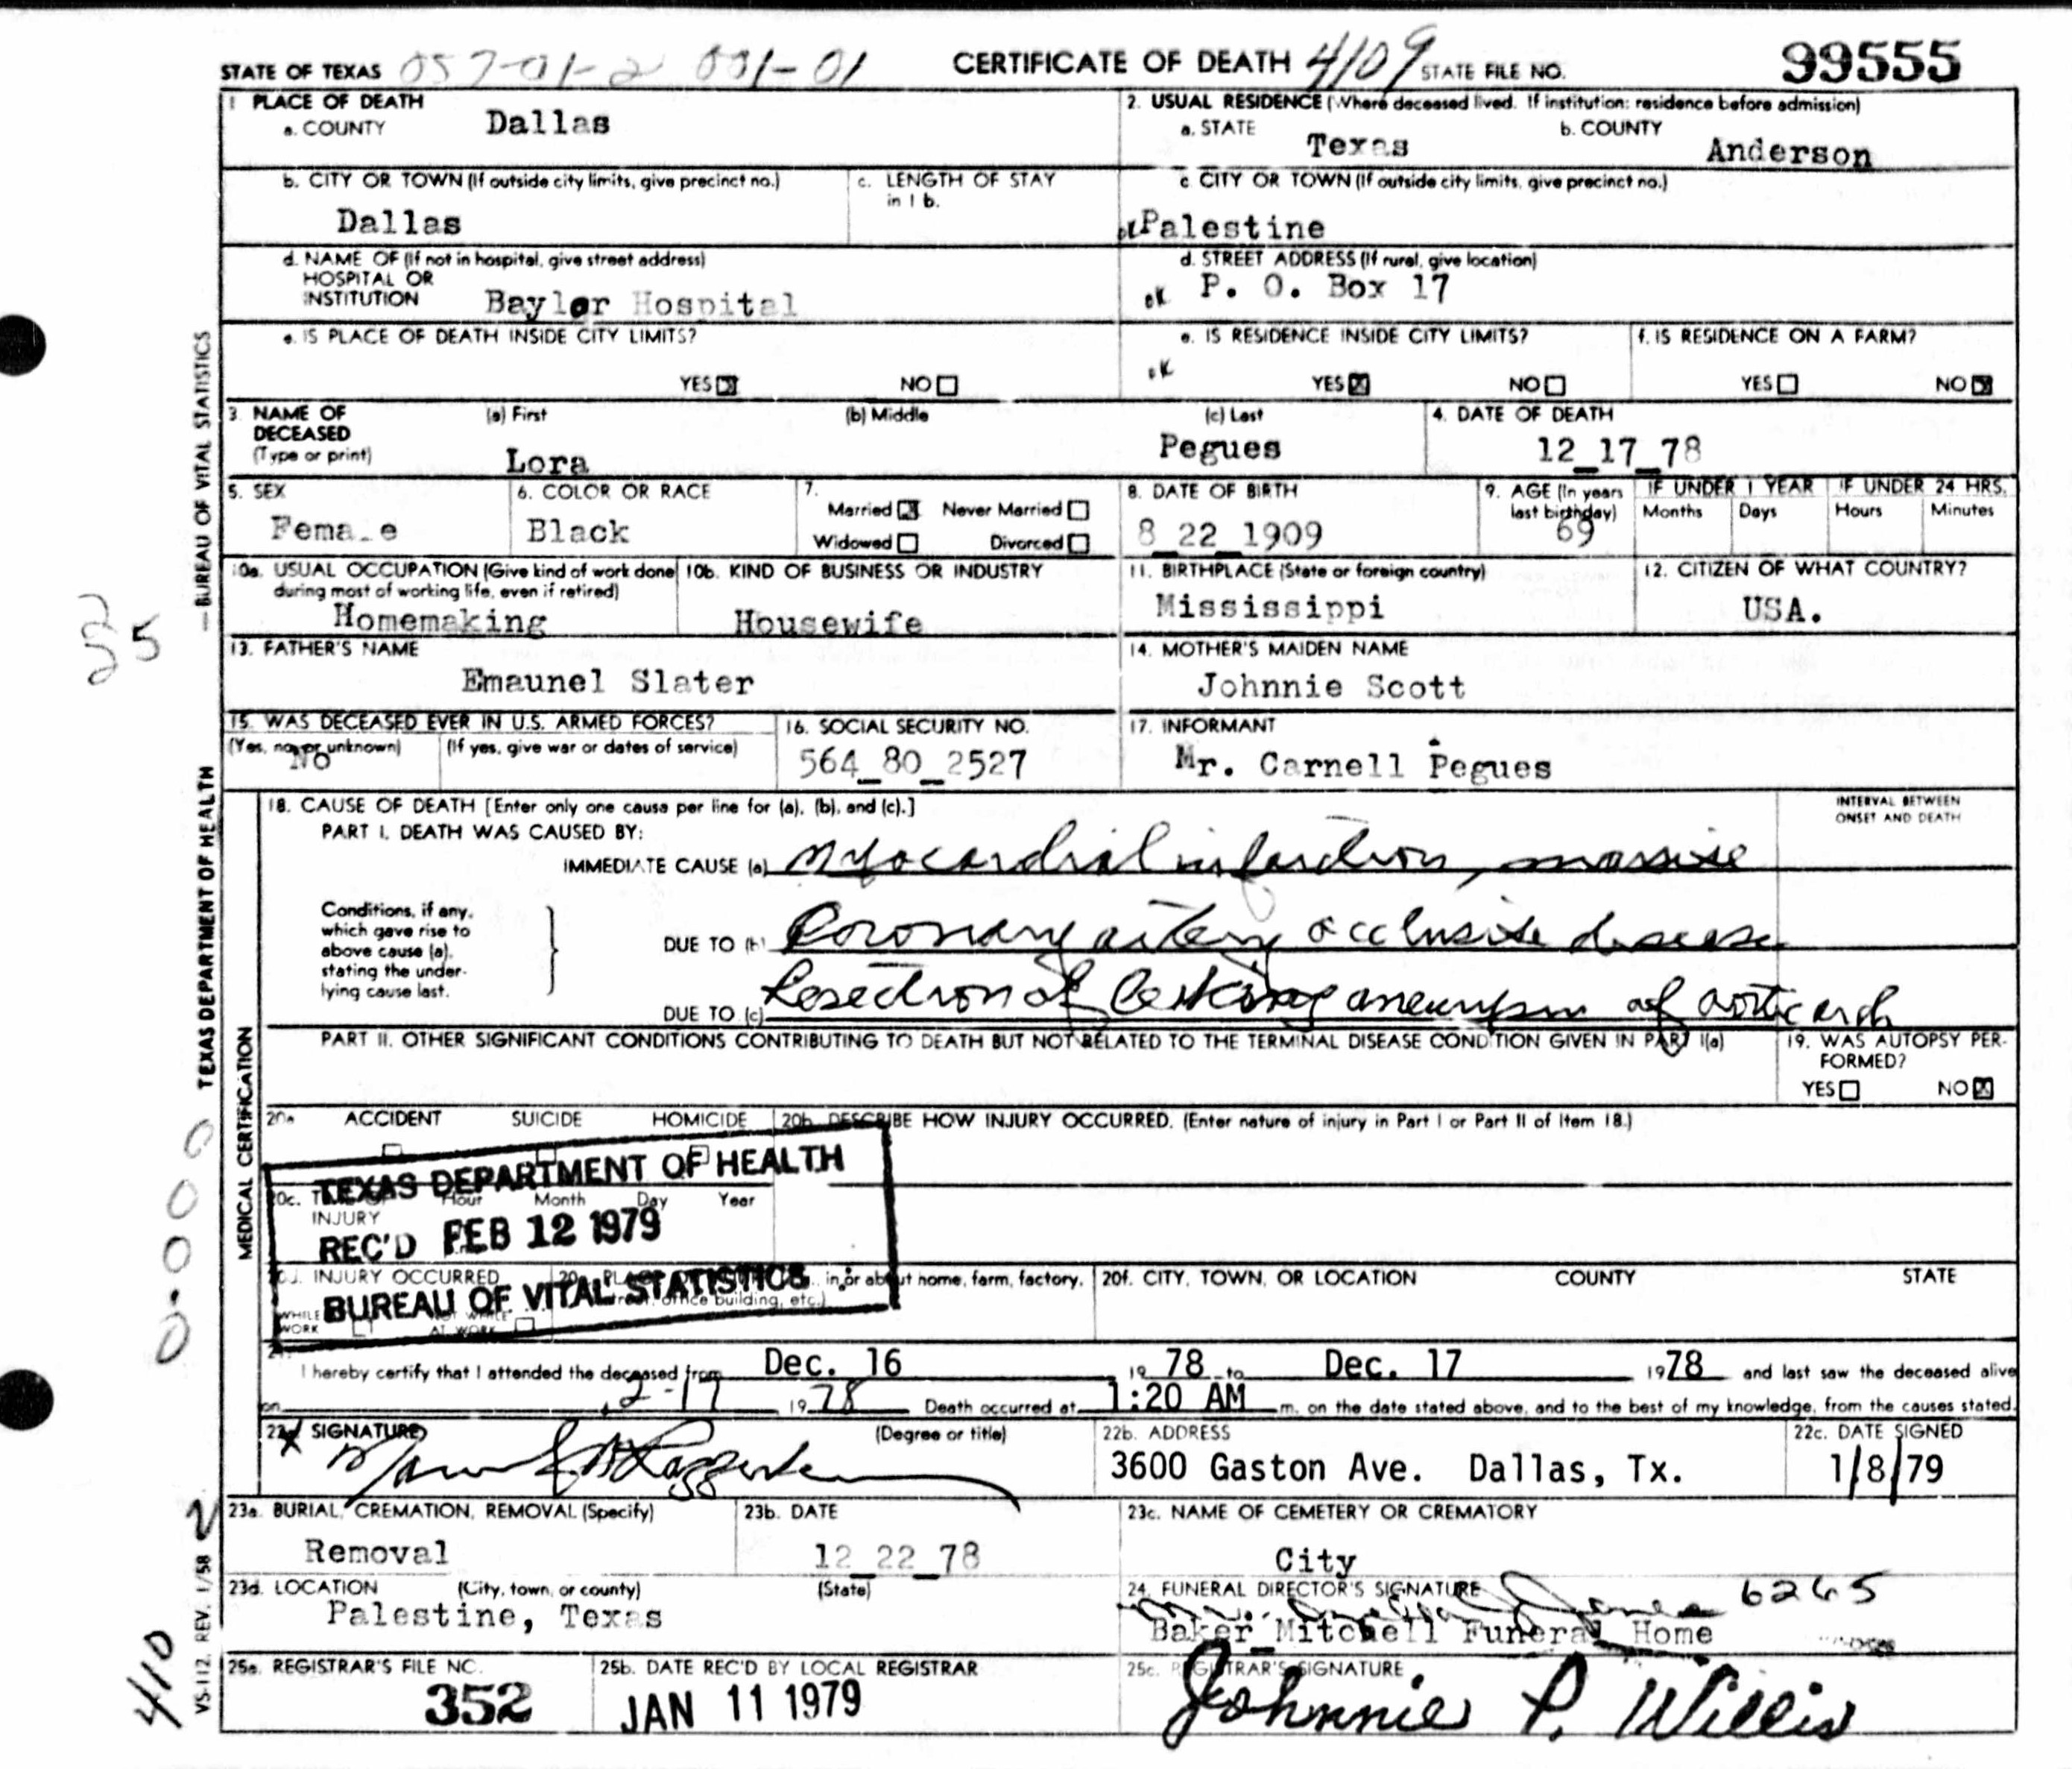 STATE OF TEXAS 057-01-2 001-01 CERTIFICATE OF DEATH 4109 STATE FILE NO. 99555
1 PLACE OF DEATH
a. COUNTY Dallas
2. USUAL RESIDENCE (Where deceased lived. If institution: residence before admission)
a. STATE Texas b. COUNTY Anderson
b. CITY OR TOWN (If outside city limits, give precinct no.) Dallas
c. LENGTH OF STAY in 1 b.
c CITY OR TOWN (If outside city limits, give precinct no.)
Palestine
d. NAME OF (If not in hospital, give street address)
HOSPITAL OR
INSTITUTION Baylor Hospital
d. STREET ADDRESS (If rural, give location)
ok P. O. Box 17
e. IS PLACE OF DEATH INSIDE CITY LIMITS?
YES NO
e. IS RESIDENCE INSIDE CITY LIMITS?
ok YES NO
f. IS RESIDENCE ON A FARM?
YES NO
3. NAME OF DECEASED (Type or print)
(a) First (b) Middle (c) Last
Lora Pegues
4. DATE OF DEATH
12_17_78
5. SEX
Fema_e
6. COLOR OR RACE
Black
7.
Married Never Married
Widowed Divorced
8. DATE OF BIRTH
8_22_1909
9. AGE (In years last birthday)
69
IF UNDER 1 YEAR IF UNDER 24 HRS.
Months Days Hours Minutes
10a. USUAL OCCUPATION (Give kind of work done during most of working life, even if retired)
Homemaking
10b. KIND OF BUSINESS OR INDUSTRY
Housewife
11. BIRTHPLACE (State or foreign country)
Mississippi
12. CITIZEN OF WHAT COUNTRY?
USA.
13. FATHER'S NAME
Emaunel Slater
14. MOTHER'S MAIDEN NAME
Johnnie Scott
15. WAS DECEASED EVER IN U.S. ARMED FORCES?
(Yes, no, or unknown) (If yes, give war or dates of service)
No
16. SOCIAL SECURITY NO.
564_80_2527
17. INFORMANT
Mr. Carnell Pegues
18. CAUSE OF DEATH [Enter only one cause per line for (a), (b), and (c).]
INTERVAL BETWEEN
ONSET AND DEATH
PART I. DEATH WAS CAUSED BY:
IMMEDIATE CAUSE (a) Myocardial infarction, massive
Conditions, if any,
which gave rise to
above cause (a),
stating the under-
lying cause last.
DUE TO (b) Coronary artery occlusive disease
DUE TO (c) Resection of leaking aneurysm of aortic arch
PART II. OTHER SIGNIFICANT CONDITIONS CONTRIBUTING TO DEATH BUT NOT RELATED TO THE TERMINAL DISEASE CONDITION GIVEN IN PART I(a)
19. WAS AUTOPSY PER-
FORMED?
YES NO
20a ACCIDENT SUICIDE HOMICIDE
20b. DESCRIBE HOW INJURY OCCURRED. (Enter nature of injury in Part I or Part II of Item 18.)
TEXAS DEPARTMENT OF HEALTH
20c. Hour Month Day Year
INJURY
REC'D FEB 12 1979
INJURY OCCURRED
in or about home, farm, factory,
office building, etc.)
BUREAU OF VITAL STATISTICS
WHILE
WORK
NOT WHILE
AT WORK
20f. CITY, TOWN, OR LOCATION COUNTY STATE
I hereby certify that I attended the deceased from Dec. 16 19 78 to Dec. 17 19 78 and last saw the deceased alive
on 2-17 19 78 Death occurred at 1:20 AM m. on the date stated above, and to the best of my knowledge, from the causes stated.
22a SIGNATURE (Degree or title)
22b. ADDRESS
3600 Gaston Ave. Dallas, Tx.
22c. DATE SIGNED
1/8/79
23a. BURIAL, CREMATION, REMOVAL (Specify)
Removal
23b. DATE
12_22_78
23c. NAME OF CEMETERY OR CREMATORY
City
23d. LOCATION (City, town, or county) (State)
Palestine, Texas
24. FUNERAL DIRECTOR'S SIGNATURE
6265
Baker_Mitchell Funeral Home
25a. REGISTRAR'S FILE NO.
352
25b. DATE REC'D BY LOCAL REGISTRAR
JAN 11 1979
25c. REGISTRAR'S SIGNATURE
Johnnie P. Willis
TEXAS DEPARTMENT OF HEALTH — BUREAU OF VITAL STATISTICS
MEDICAL CERTIFICATION
VS-112. REV. 1/58
410